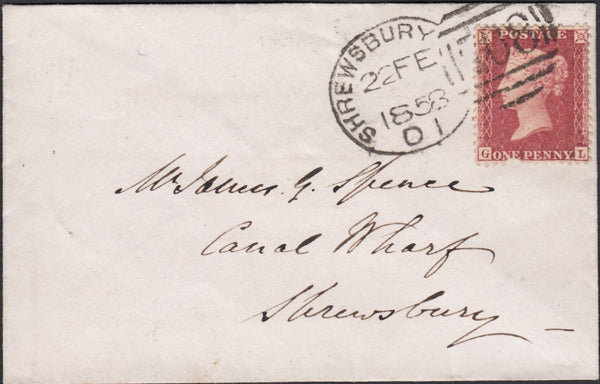 SHREWSBURY
22 FE
1858
D1
POSTAGE
G ONE PENNY L
Mr James G. Spence
Canal Wharf
Shrewsbury